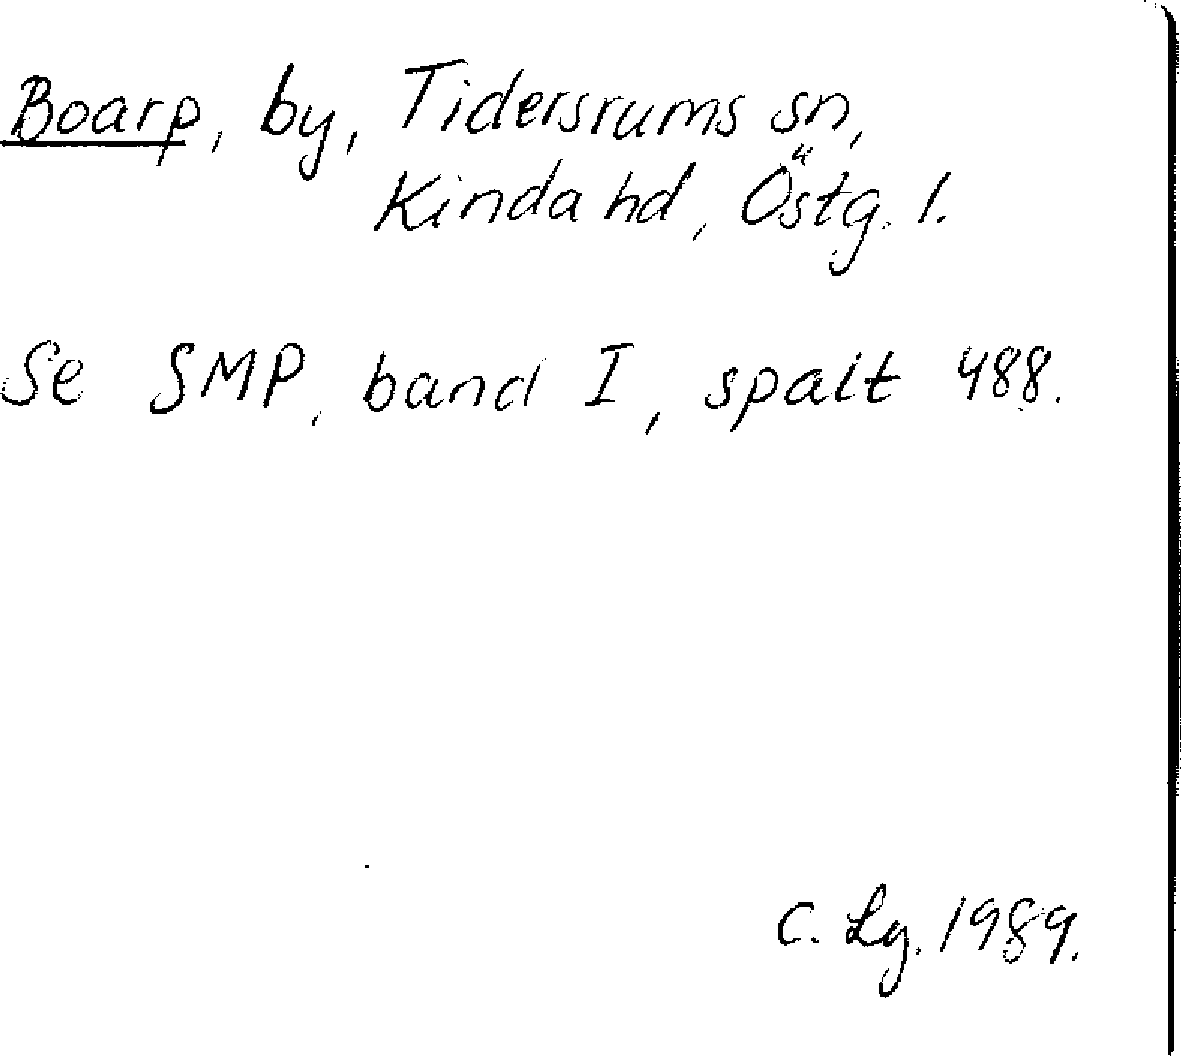 Boarp, by, Tidersrums sn,
Kinda hd, Östg. l.
Se SMP, band I, spalt 488.
C. Lg. 1989.